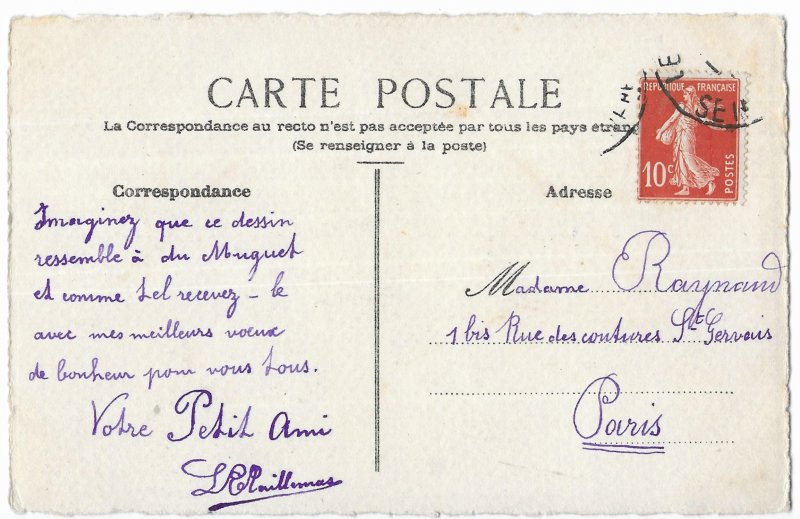 CARTE POSTALE
La Correspondance au recto n'est pas acceptée par tous les pays étran
(Se renseigner à la poste)
REPUBLIQUE FRANÇAISE
10c
POSTES
Correspondance
Imaginez que ce dessin
ressemble à du Muguet
et comme tel recevez-le
avec mes meilleurs voeux
de bonheur pour vous tous.
Votre Petit Ami
Adresse
Madame Raynaud
1 bis Rue des coutures St Gervais
Paris